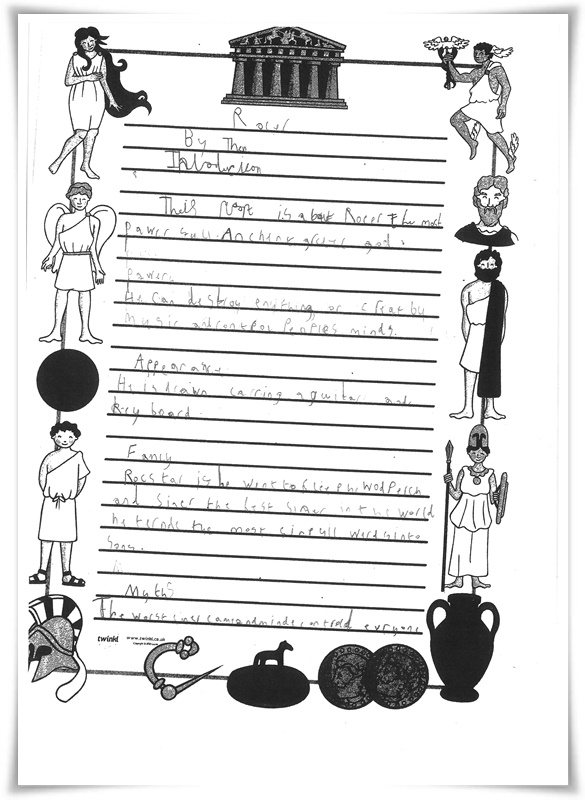 Rocer
By Theo
Introduction
Their repot is about Rocer the most
power full Anchint greece god.
Powers
He can destroy enything or creat by
music and control Peoples minds.
Appearance
He is drawn carring a guitar and
key board.
Family
Rocstar is he went to
and Siner the best Siner in the World
he ternds the most simpull words into
song.
Myths
The worst siner came and mindcontrold everyone
twinkl www.twinkl.co.uk